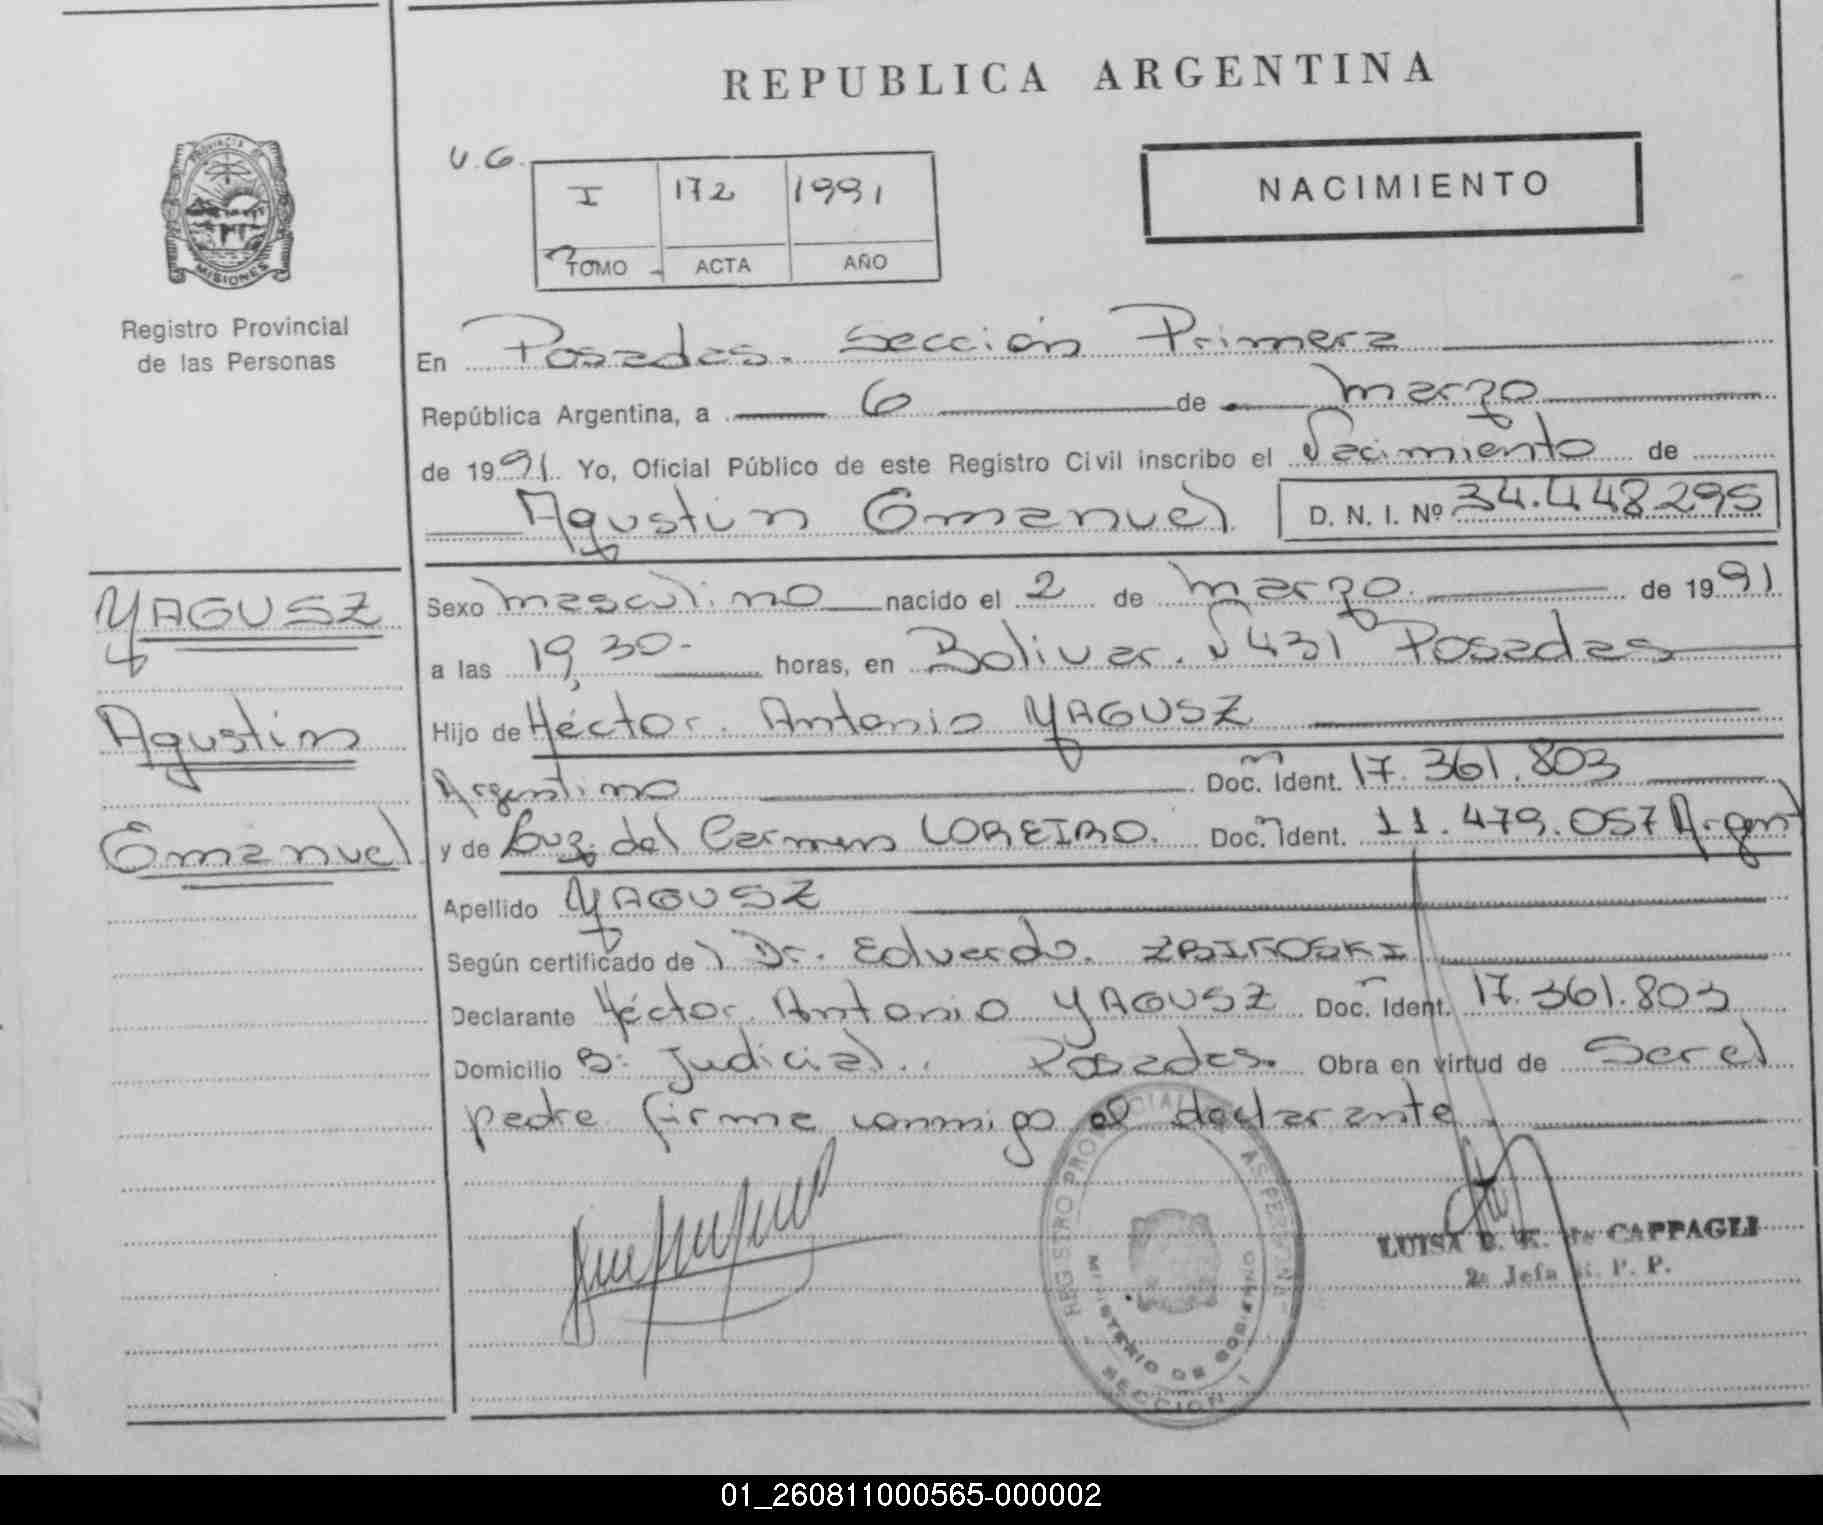 REPUBLICA ARGENTINA
PROVINCIA D
MISIONES
Registro Provincial
de las Personas
V.G.
I 172 1991
TOMO ACTA AÑO
NACIMIENTO
En Posadas. Sección Primera
República Argentina, a 6 de marzo
de 1991. Yo, Oficial Público de este Registro Civil inscribo el Nacimiento de
Agustin Emanuel D. N. I. Nº 34.448.295
YAGUSZ
Agustin
Emanuel
Sexo masculino nacido el 2 de marzo. de 1991
a las 19,30.- horas, en Bolivar. N 431 Posadas
Hijo de Héctor. Antonio YAGUSZ
Argentino Doc. Ident. 17.361.803
y de Luz del Carmen LOREIRO. Doc. Ident. 11.479.057 Argent
Apellido YAGUSZ
Según certificado de Dr. Eduardo.
Declarante Héctor. Antonio YAGUSZ Doc. Ident. 17.361.803
Domicilio B: Judicial. Posadas. Obra en virtud de Ser el
padre firma conmigo el declarante.
REGISTRO PROVINCIAL AS PERSONA
MINISTERIO DE GOBIERNO
SECCION 1
LUISA E. de CAPPAGLI
2a Jefa R. P. P.
01_260811000565-000002